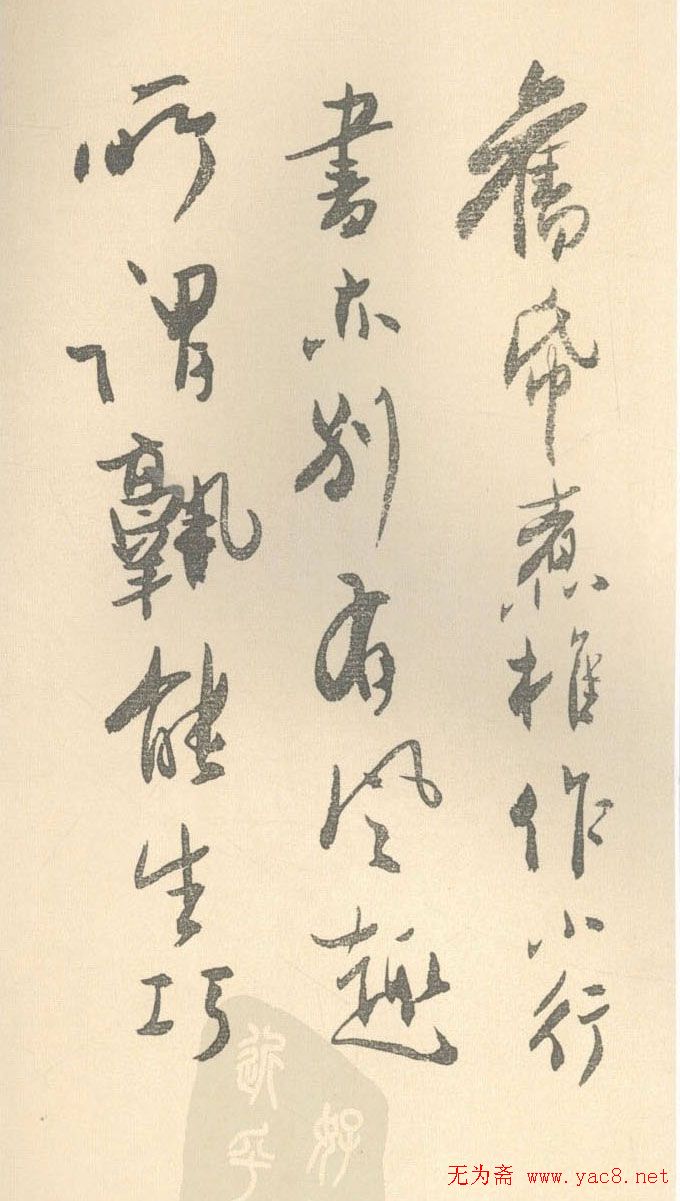 舊帋煮椎作小行
書亦别有風趣
所謂孰能生巧
无为斋 www.yac8.net